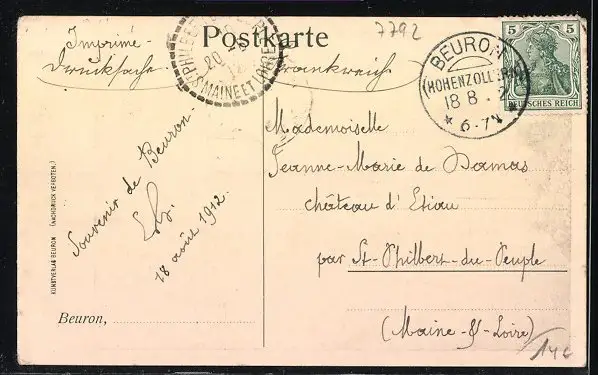 7792
Postkarte
Imprimé.
Drucksache
Frankreich
20
MAINE ET LOIRE
BEURON
(HOHENZOLLERN)
18 8
* 6-7N *
5 5
DEUTSCHES REICH
Souvenir de Beuron
18 août 1912.
Mademoiselle
Jeanne-Marie de Damas
château d'Etiau
par St-Philbert-du-Peuple
(Maine-&-Loire)
KUNSTVERLAG BEURON (NACHDRUCK VERBOTEN.)
Beuron,
14€